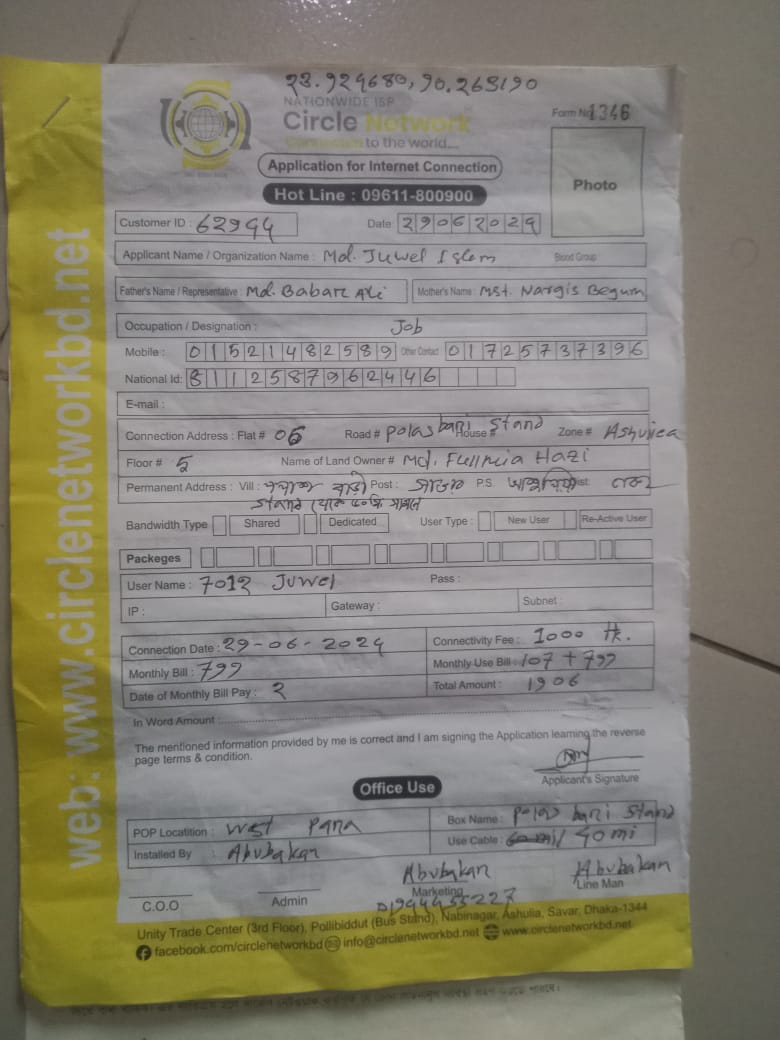 23.924680, 90.265190
NATIONWIDE ISP
Circle Network
Connection to the world....
Form No 1346
Application for Internet Connection
Photo
Hot Line : 09611-800900
Customer ID : 62994 Date 29062024
Applicant Name / Organization Name : Md. Juwel Islem Blood Group
Father's Name / Representative : Md. Babar Ali Mother's Name : Mst. Nargis Begum
Occupation / Designation : Job
Mobile : 01521482589 Other Contact 01725737396
National Id: 8112587962446
E-mail :
Connection Address : Flat # 05 Road # polas bari Stand House # Zone # Ashuliea
Floor # 5 Name of Land Owner # Md. Fullmia Hazi
Permanent Address : Vill : পলাশ বাড়ী Post : সাভার P.S Dist: ঢাকা
Stand
Bandwidth Type Shared Dedicated User Type : New User Re-Active User
Packeges
User Name : 7012 Juwel Pass :
IP : Gateway : Subnet :
Connection Date : 29-06-2024 Connectivity Fee : 1000 tk.
Monthly Bill : 799 Monthly Use Bill : 107 + 799
Date of Monthly Bill Pay : 2 Total Amount : 1906
In Word Amount :
The mentioned information provided by me is correct and I am signing the Application learning the reverse
page terms & condition.
Applicant's Signature
Office Use
POP Locatition : West Para Box Name : polas bari Stand
Installed By : Abubakar Use Cable : 40 mi
Abubakar Abubakar
C.O.O Admin Marketing Line Man
01944955227
Unity Trade Center (3rd Floor), Pollibiddut (Bus Stand), Nabinagar, Ashulia, Savar, Dhaka-1344
facebook.com/circlenetworkbd info@circlenetworkbd.net www.circlenetworkbd.net
web: www.circlenetworkbd.net